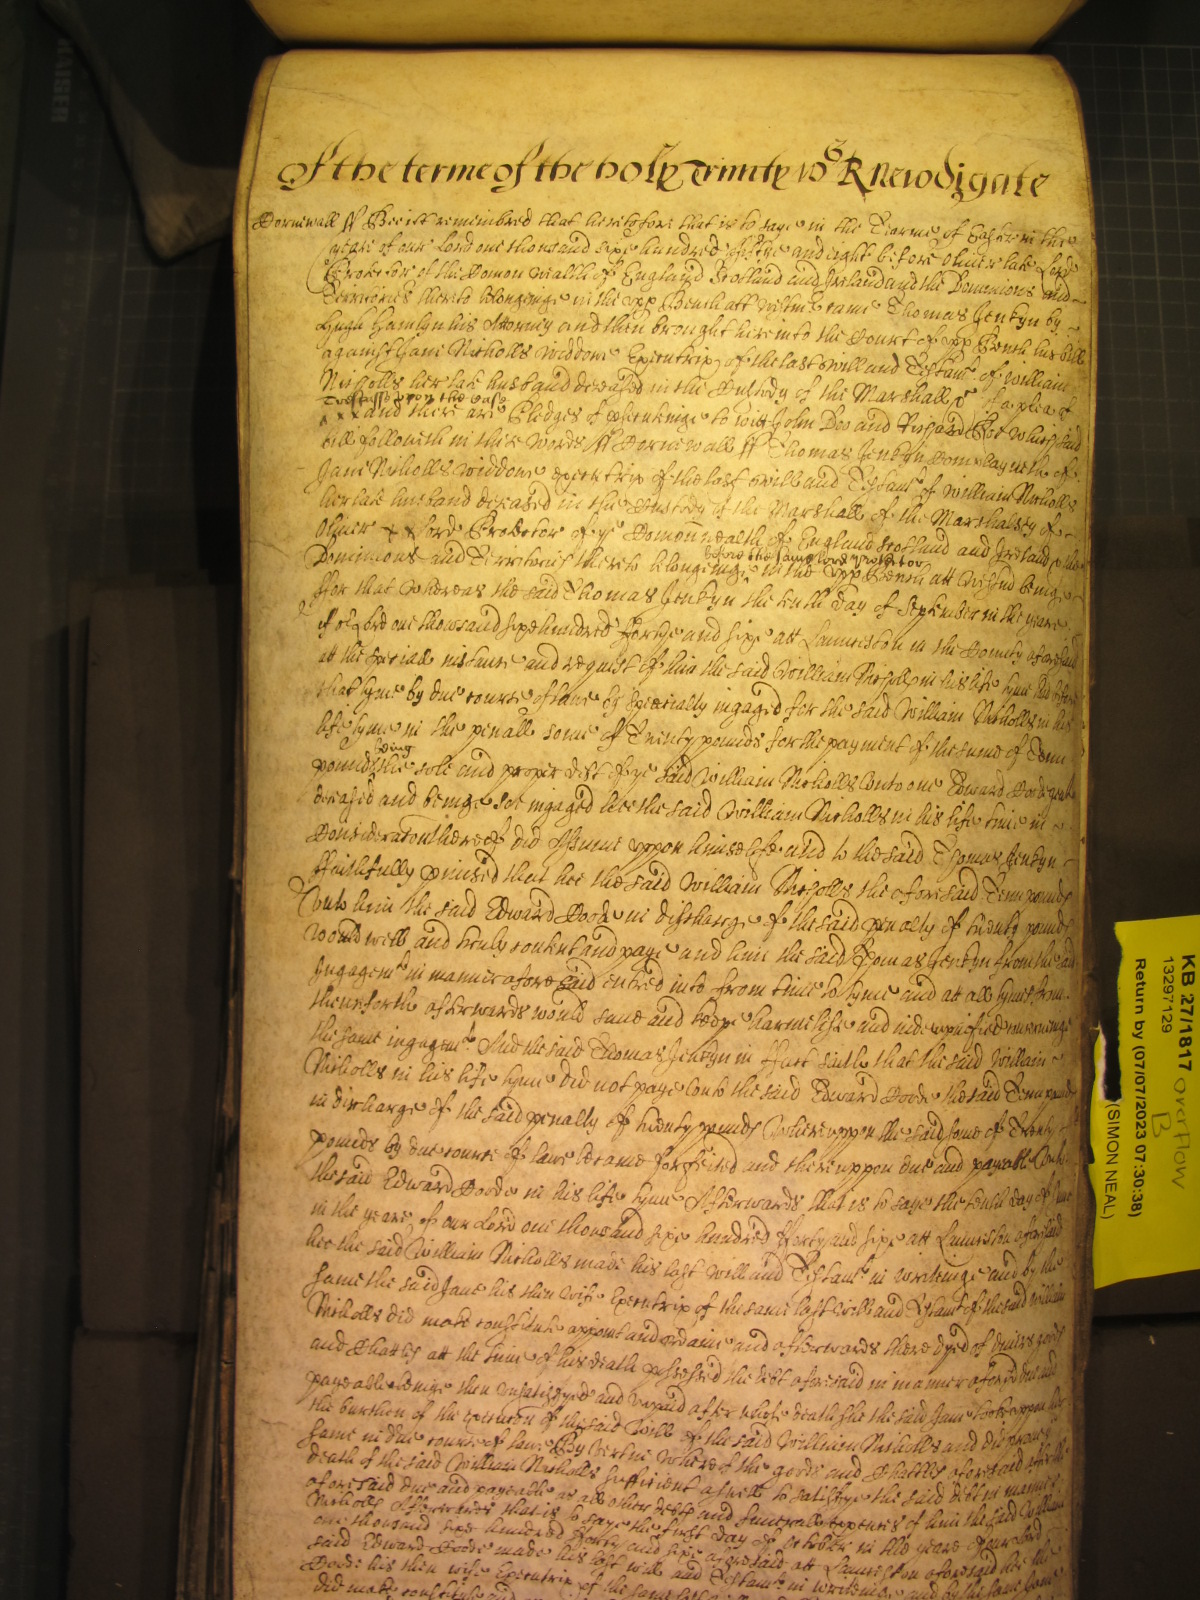 Of the terme of the holy Trinity 1658 R Newdigate
Cornewall ss Bee it remembred that heretofore that is to saye in the Tearme of Easter in the
yeare of our Lord one thousand sixe hundred fiftye and eight before Oliver late Lord
Protector of the Comon wealth of England Scotland and Ireland and the Dominions and
Territories thereto belonginge in the upp Bench att Westmr came Thomas Jenkyn by
Hugh Hamlyn his Attorney and then brought here into the Court of upp Bench his bill
against Jane Nicholls widdowe Executrix of the last will and Testamt of William
Nicholls her late husband deceased in the Custody of the Marshall &c of a plea of
Trespasse upon the case
and there are Pledges of prosecutinge to witt John Doo and Richard Roe which said
bill followeth in these words ss Cornewall ss Thomas Jenkyn Complayneth of
Jane Nicholls widdowe executrix of the last will and Testamt of William Nicholls
her late husband deceased in the Custody of the Marshall of the Marshalsey of
Oliver Lord Protector of ye Commonwealth of England Scotland and Ireland & the
Dominions and Territories thereto belonginge in the upp Bench att Westmr beinge
before the same lord protector
ffor that Whereas the said Thomas Jenkyn the tenth day of September in the yeare
of or Lord one thowsand sixe hundred fortye and sixe att Launceston in the County aforesaid
att the speciall instance and request of him the said William Nicholls in his life tyme had before
that tyme by due course of lawe bene specially ingaged for the said William Nicholls in his
life tyme in the penall some of Twenty pounds for the payment of the sume of Tenn
pounds being the sole and proper debt of ye said William Nicholls unto one Edward Doode
deceased and beinge soe ingaged hee the said William Nicholls in his life time in
Consideraton thereof did Assume uppon himselfe and to the said Thomas Jenkyn
ffaithfully promised that hee the said William Nicholls the aforesaid Tenn pounds
unto him the said Edward Doode in discharge of the said penalty of twenty pounds
would well and truly content and paye and him the said Thomas Jenkyn from the said
Ingagemt in manner aforesaid entred into from time to tyme and att all tymes from
thenceforth afterwards would save and keepe harmelesse and indempnified concerninge
the same ingagemt And the said Thomas Jenkyn in ffact saith that the said William
Nicholls in his life tyme did not paye unto the said Edward Doode the said Tenn pounds
in discharge of the said penalty of twenty pounds Whereuppon the said some of Twenty
pounds by due course of lawe became forfeited and thereuppon due and payable unto
the said Edward Doode in his life tyme Afterwards that is to saye the tenth day of
in the yeare of our Lord one thousand sixe hundred ffortyand sixe att Launceston aforesaid
hee the said William Nicholls made his last will and Testamt in writeinge and by the
same the said Jane his then wife Executrix of the same last will and Testamt of the said William
Nicholls did make constitute appoint and ordaine and afterwards there dyed of divers goods
and Chattles att the time of his death possessed the debt aforesaid in manner aforesaid due and
payeable beinge then unsatisfyed and unpaid after whose death shee the said Jane tooke uppon her
the burthen of the execution of the said Will of the said William Nicholls and did prove
same in due course of lawe By vertue whereof the goods and Chattells aforesaid after the
death of the said William Nicholls sufficient aswell to satisfye the said debt in manner
aforesaid due and payeable as all other debts and funerall expences of him the said William
Nicholls Afterwards that is to saye the first day of October in the yeare of our Lord
one thousand sixe hundred forty and sixe aforesaid att Launceston aforesaid hee the
said Edward Doode made his last will and Testamt in writeinge and by the same
Doode his then wife Executrix of the same last
did make constitute and
KB 27/1817 overflow
13297129 B
Return by (07/07/2023 07:30:38)
(SIMON NEAL)
KAISER